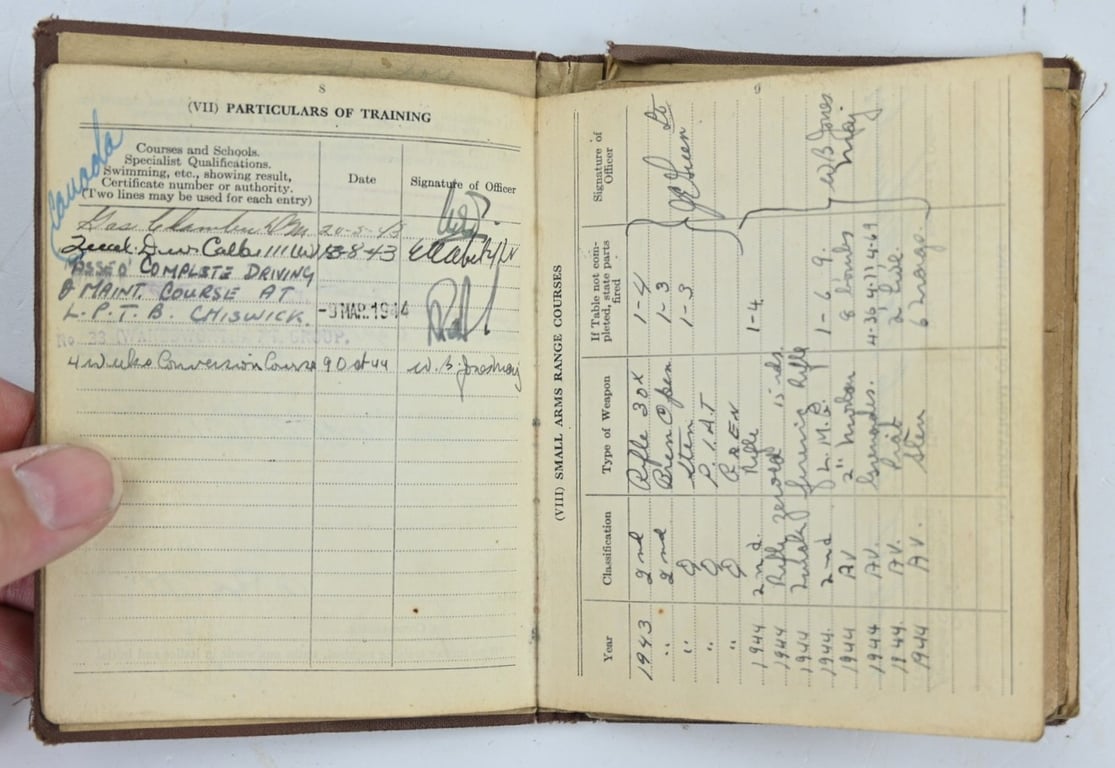 8
(VII) PARTICULARS OF TRAINING
Canada
Courses and Schools.
Specialist Qualifications.
Swimming, etc., showing result,
Certificate number or authority.
(Two lines may be used for each entry)
Date
Signature of Officer
Gas Chamber 20-5-43
13-8-43
PASSED COMPLETE DRIVING
& MAINT. COURSE AT
L.P.T.B. CHISWICK. -9 MAR. 1944
No. 33 GROUP.
4 weeks Conversion Course 9 Oct 44 W. B. Jones Maj
9
(VIII) SMALL ARMS RANGE COURSES
Year
Classification
Type of Weapon
If Table not com-
pleted, state parts
fired
Signature of
Officer
1943 2nd Rifle 30x 1-4
" 2nd Bren Open 1-3
" Q Sten 1-3
" Q P.I.A.T
" Q
1944 2nd. Rifle 1-4
1944 Rifle zeroed rds.
1944 firing Rifle
1944. 2nd L.M.G. 1-6 9. W B Jones
1944 AV 2" 8 bombs Maj
1944 AV. Grenades. 4-36 4-77 4-69
1944. AV. Piat 2 live.
1944 AV. Sten